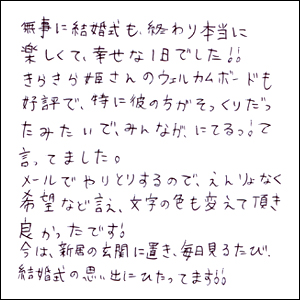 無事に結婚式も、終わり本当に
楽しくて、幸せな1日でした!!
きらきら姫さんのウェルカムボードも
好評で、特に彼のちがそっくりだっ
たみたいで、みんなが、にてるっ!て
言ってました。
メールでやりとりするので、えんりょなく
希望など言え、文字の色も変えて頂き
良かったです!
今は、新居の玄関に置き、毎日見るたび、
結婚式の思い出にひたってます!!